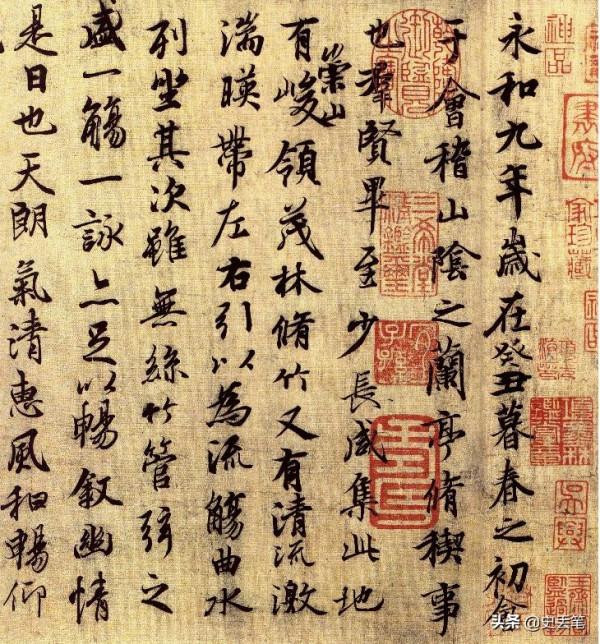 永和九年歲在癸丑暮春之初會
于會稽山陰之蘭亭脩稧事
也羣賢畢至少長咸集此地
有崇山峻領茂林脩竹又有清流激
湍暎帶左右引以為流觴曲水
列坐其次雖無絲竹管弦之
盛一觴一詠亦足以暢敘幽情
是日也天朗氣清惠風和暢仰
神品
头条 @史丢笔